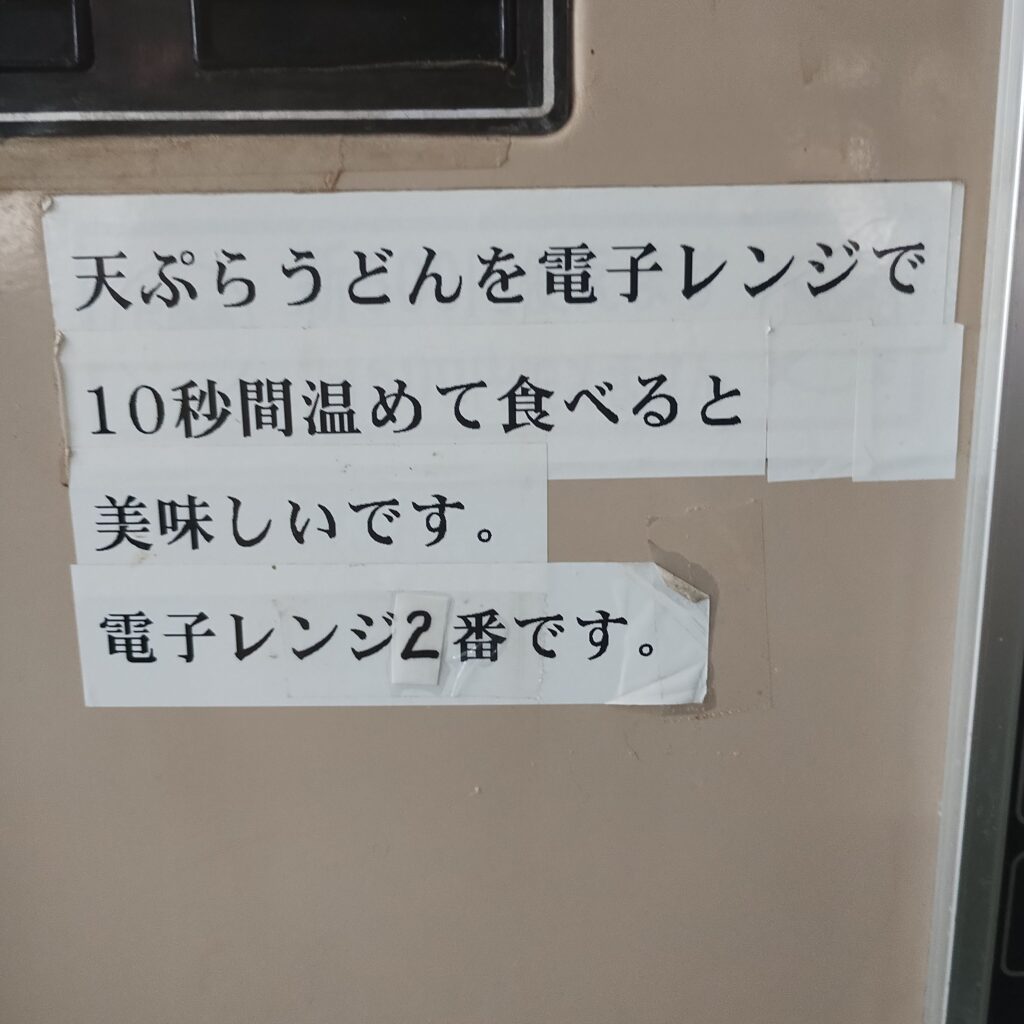 天ぷらうどんを電子レンジで
10秒間温めて食べると
美味しいです。
電子レンジ2番です。